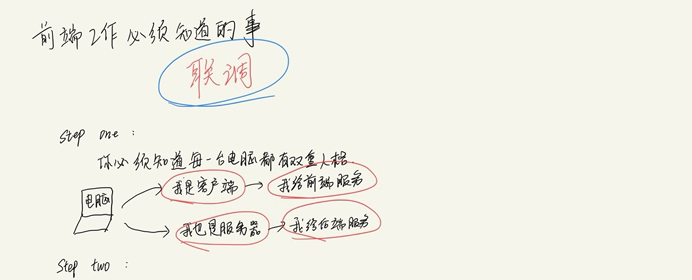 前端工作必须知道的事
联调
Step one :
你必须知道每一台电脑都有双重人格.
电脑
我是客户端
我给前端服务
我也是服务器
我给后端服务
Step two :